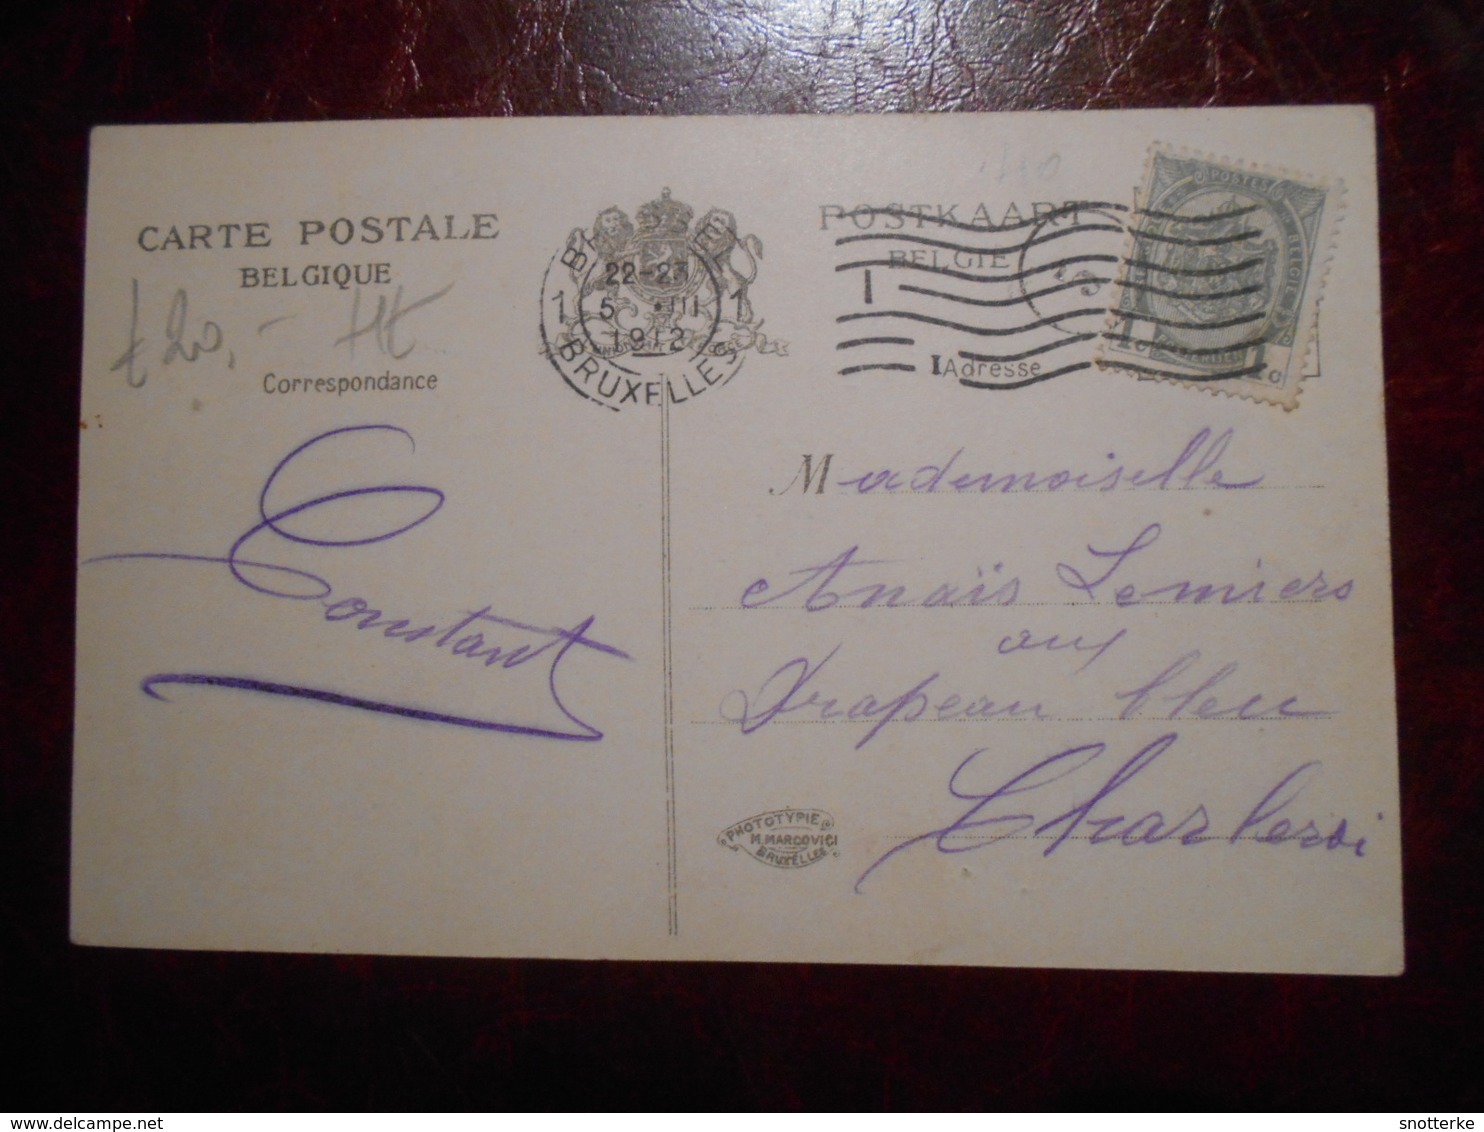 CARTE POSTALE
BELGIQUE
Correspondance
POSTKAART
BELGIE
Adresse
22-23
1 5 III 1
1912
BRUXELLES
POSTES
BELGIE
1c 1c
f 20,-
Constant
Mademoiselle
Anaïs Lemiers
aux
Drapeau bleu
Charleroi
PHOTOTYPIE
M. MARCOVICI
BRUXELLES
snotterke